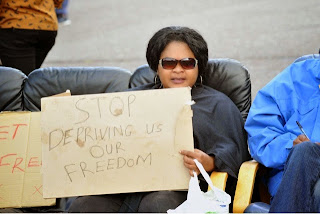 ET
FREE
STOP
DEPRIVING US
OUR
FREEDOM